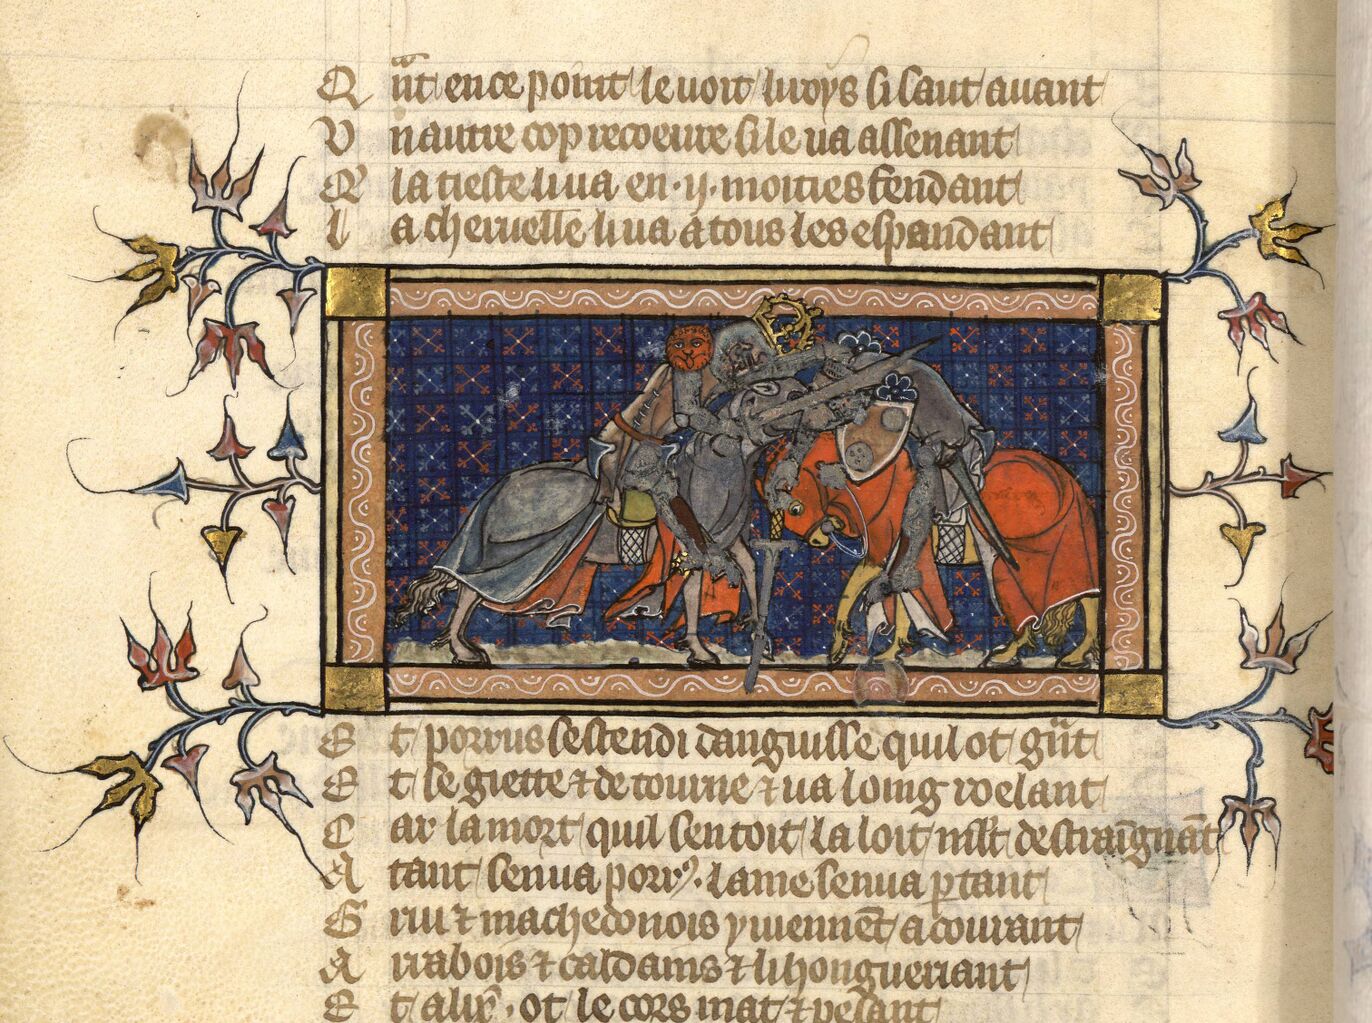 Q ñt en ce point le voit li roys si saut avant
V n autre cop recoevre si le va assenant
Q la tieste li va en .ij. moities fendant
L a chervelle li va a tous les espandant
E t porrus sestendi danguisse quil ot gũt
E t se giette ⁊ detourne ⁊ va loing roelant
C ar la mort quil sentoit laloit mlt destraĩgnãt
A tant senva porr⁹. lame senva ꝑtant
G riu ⁊ machedonois y viennẽt acourant
A rrabois ⁊ caldains ⁊ li hongueriant
E t alix̃. ot le cors mat ⁊ pesant